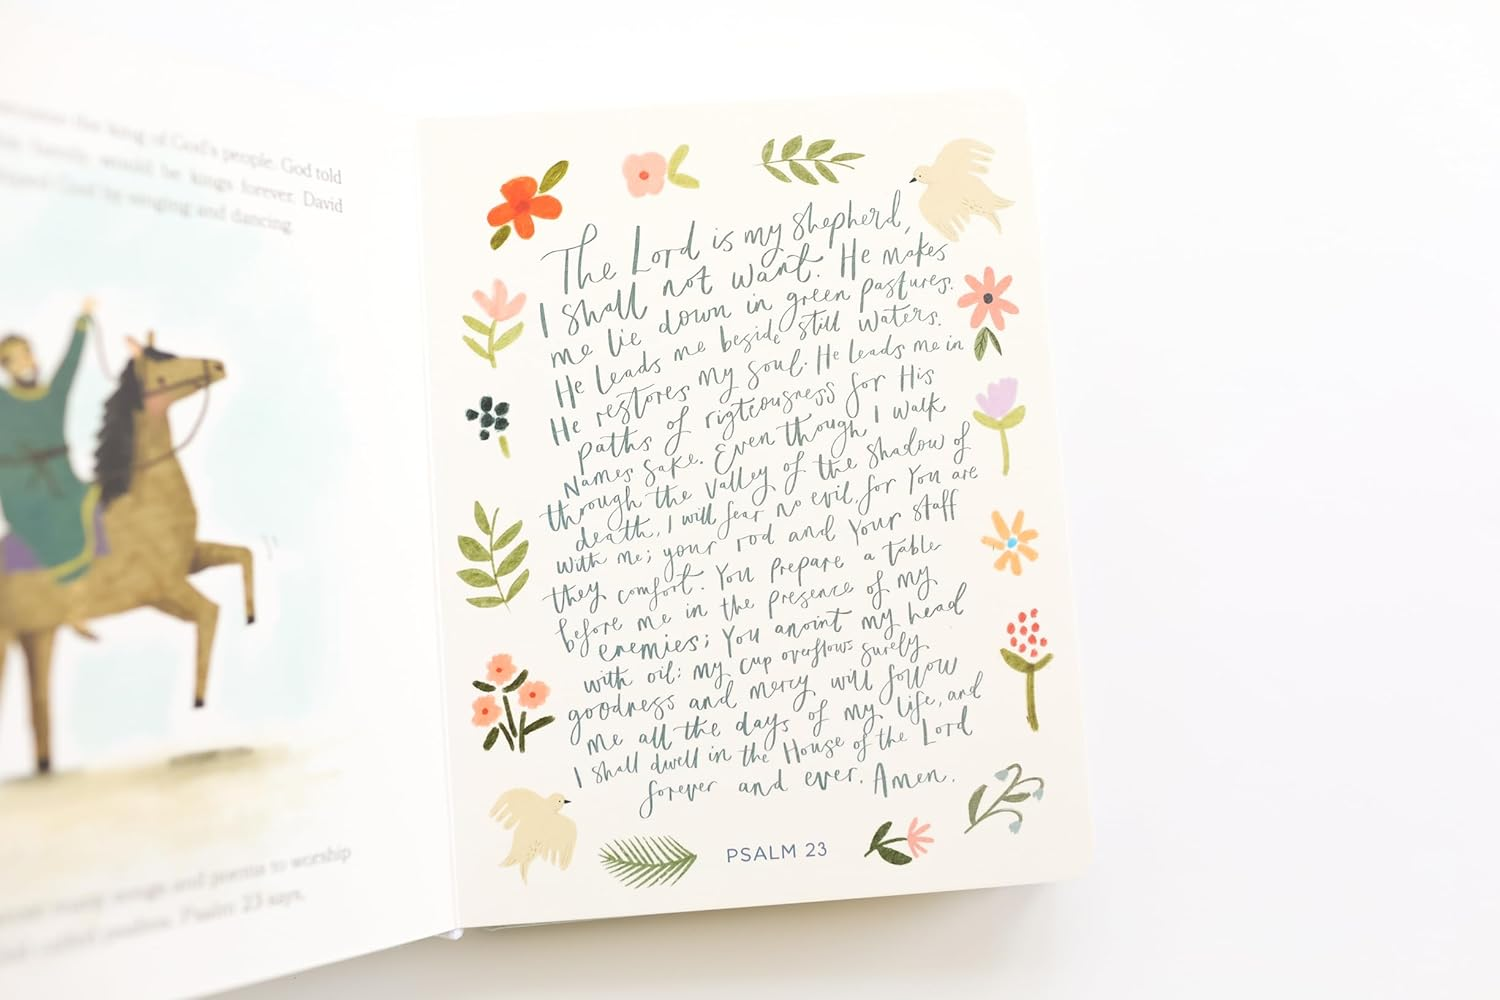 the king of God's people. God told
family would be kings forever. David
God by singing and dancing.
many songs and poems to worship
called psalms. Psalm 23 says,
The Lord is my shepherd,
I shall not want. He makes
me lie down in green pastures.
He leads me beside still waters.
He restores my soul. He leads me in
paths of righteousness for His
Names Sake. Even though I walk
through the valley of the shadow of
death, I will fear no evil, for You are
with me; your rod and Your staff
they comfort. You prepare a table
before me in the presence of my
enemies; You anoint my head
with oil; my cup overflows surely
goodness and mercy will follow
me all the days of my life, and
I shall dwell in the House of the Lord
forever and ever. Amen.
PSALM 23